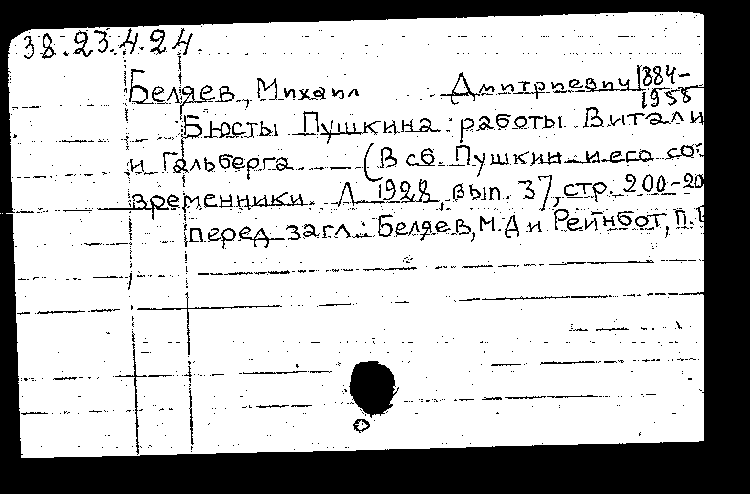 38.23.4.24.
Беляев, Михаил Дмитриевич 1884-
1958
Бюсты Пушкина работы Витали
и Гальберга (В сб. Пушкин и его со-
временники. Л 1928, вып. 37, стр. 200-20
перед загл.: Беляев, М.Д и Рейнбот, П.